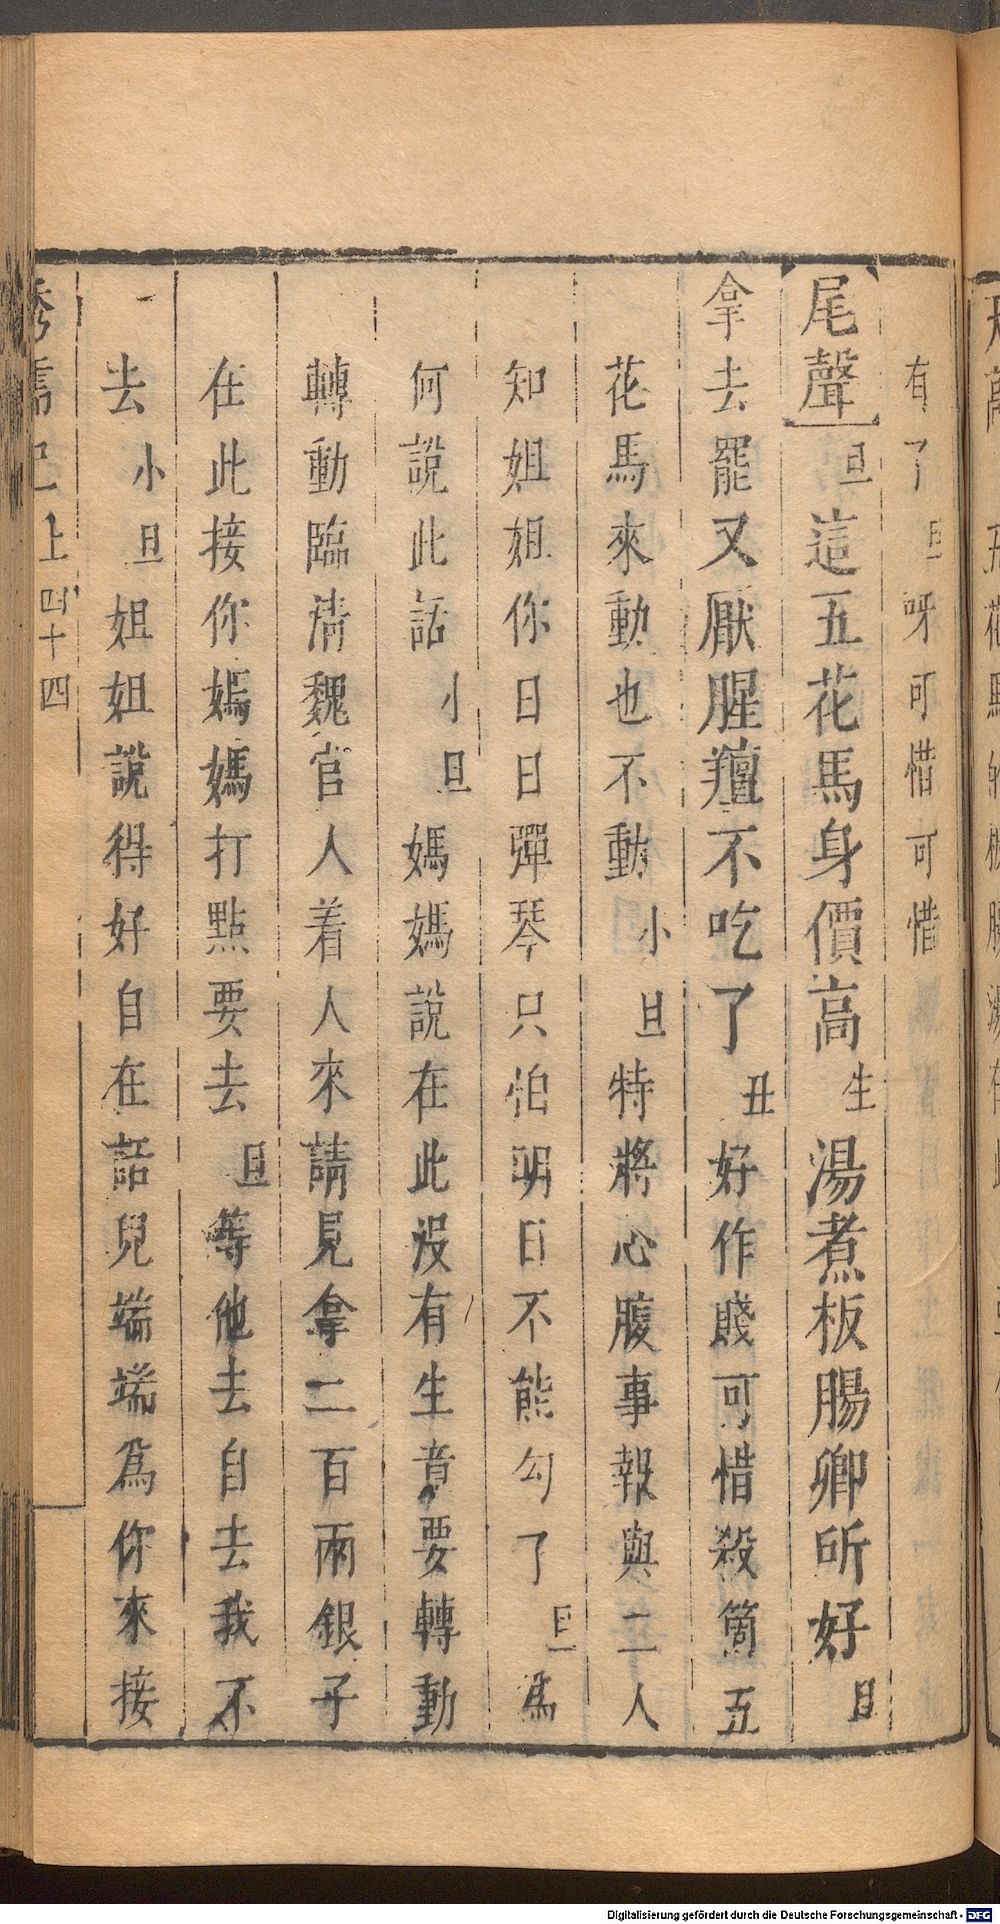 有了旦呀可惜可惜
尾聲旦這五花馬身價高生湯煮板腸卿所好旦
拿去罷又厭腥羶不吃了丑好作賤可惜殺箇五
花馬來動也不動小旦特將心腹事報與二人
知姐姐你日日彈琴只怕明日不能勾了旦爲
何說此話小旦媽媽說在此沒有生意要轉動
轉動臨清魏官人着人來請見拿二百兩銀子
在此接你媽媽打點要去旦等他去自去我不
去小旦姐姐說得好自在話兒端端爲你來接
繡襦記上四十四
Digitalisierung gefördert durch die Deutsche Forschungsgemeinschaft - DFG